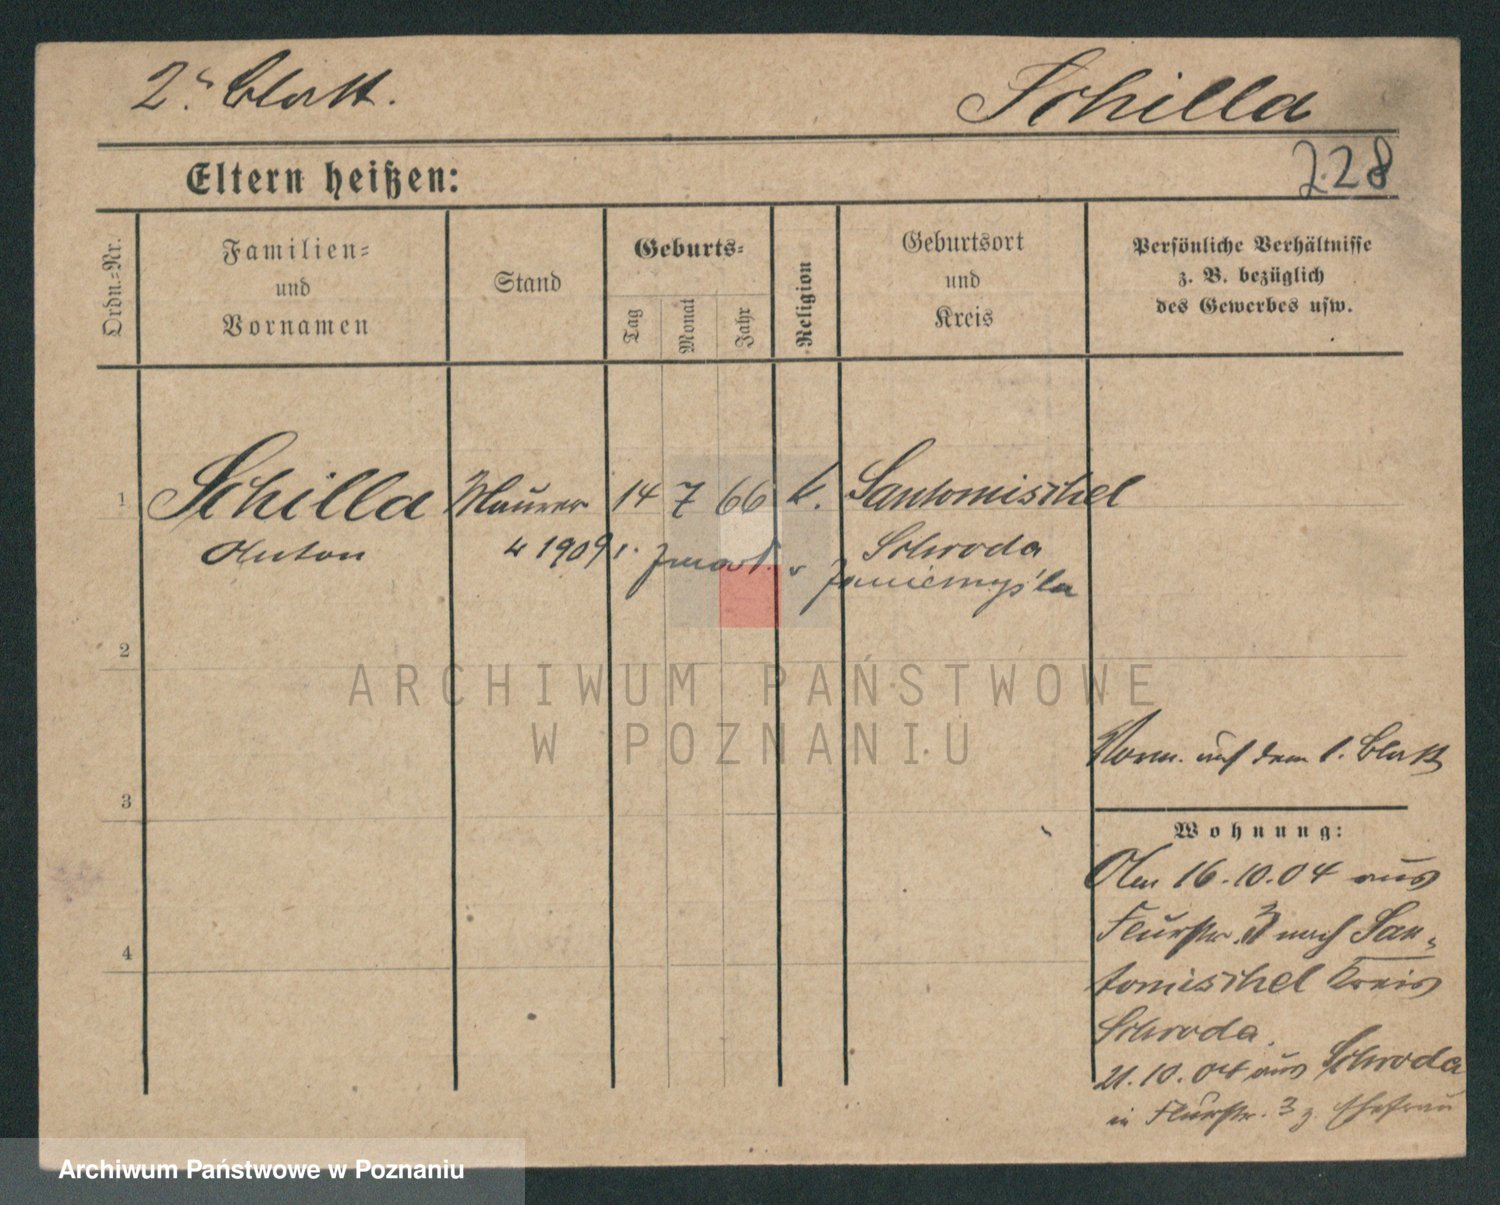 2. Blatt.
Schilla
228
Eltern heißen:
Ordn.-Nr.
Familien-
und
Vornamen
Stand
Geburts-
Tag
Monat
Jahr
Religion
Geburtsort
und
Kreis
Persönliche Verhältnisse
z. B. bezüglich
des Gewerbes usw.
1
Schilla Maurer 14 7 66 k. Santomischel
Anton
Schroda
4 1909 r. zmarł. v Zaniemyśla
2
ARCHIWUM PAŃSTWOWE
W POZNANIU
Verm. auf dem 1. Blatt
3
Wohnung:
Am 16.10.04 aus
Flurstr. 3 nach San-
tomischel Kreis
Schroda.
21.10.04 aus Schroda
in Flurstr. 3 z. Ehefrau
4
Archiwum Państwowe w Poznaniu